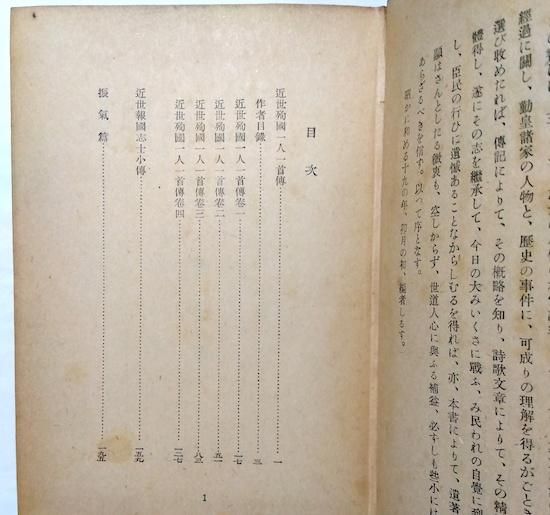 經過に關し、勤皇諸家の人物と、歷史の事件に、可成りの理解を得るがごとき
選び收めたれば、傳記によりて、その槪略を知り、詩歌文章によりて、その精
體得し、遂にその志を繼承して、今日の大みいくさに戰ふ、み民われの自覺に
し、臣民の行ひに遺憾あることなからしむるを得れば、亦、本書によりて、遺著
顯はさんとしたる微衷も、空しからず、世道人心に與ふる補益、必ずしも些小には
あらざるべきを信ず。以つて序となす。
昭かに和める十九の年、卯月の初、編者しるす。
目次
近世殉國一人一首傳……一
作者目錄……三
近世殉國一人一首傳卷一……一七
近世殉國一人一首傳卷二……五一
近世殉國一人一首傳卷三……八三
近世殉國一人一首傳卷四……一二七
近世報國志士小傳……一五九
振氣篇……一九五
1